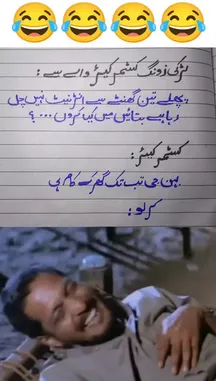 لڑکی زونگ کسٹمر کیئر والے سے :
پچھلے تین گھنٹے سے انٹرنیٹ نہیں چل
رہا ہے بتائیں میں کیا کروں ... ؟
کسٹمر کیئر :
بہن جی تب تک گھر کے کام ہی
کر لو :